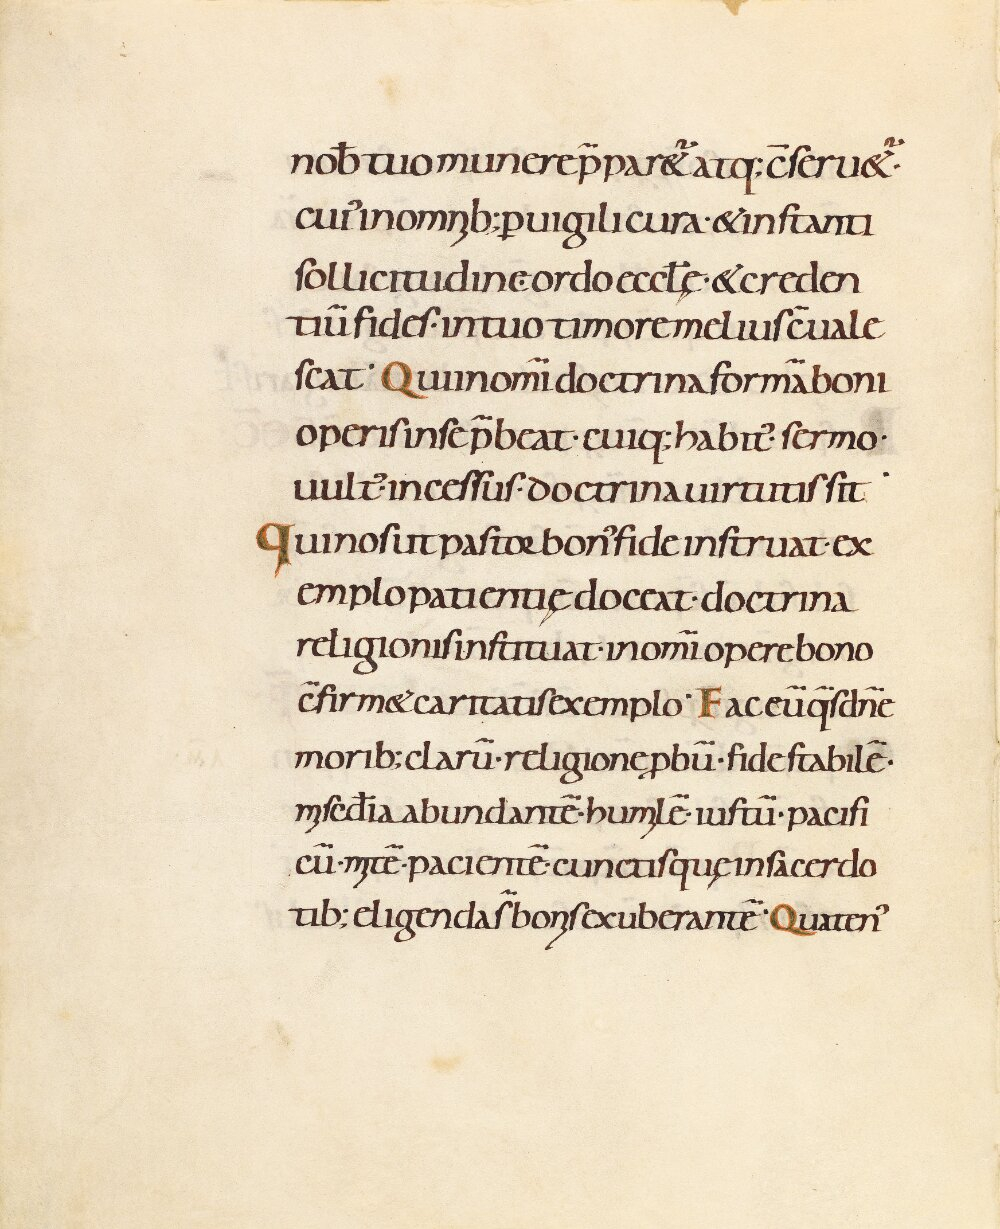 nob̄ tuo munere p̄paret᷑ atq; c̄seruet᷑·
cui᷒ in omnib; ꝑuigili cura· & instanti
sollicitudine· ordo eccl̄ę· & creden
tiū fides· in tuo timore melius c̄uale
scat· Qui in om̄i doctrina formā boni
operis in se p̄beat· cuiq; habit᷒· sermo·
uult᷒· incessus· doctrina uirtutis sit·
Qui nos ut pastor bon᷒ fide instruat· ex
emplo patientię doceat· doctrina
religionis instituat· in om̄i opere bono
c̄firm& caritatis exemplo· Fac eū q̄s dn̄e
morib; clarū· religione ꝓbū· fide stabilē·
miscd̄ia abundantē· humilē· iustū· pacifi
cū· mitē· pacientē· cunctisquę in sacerdo
tib; eligendas bonis exuberantē· Quaten᷒